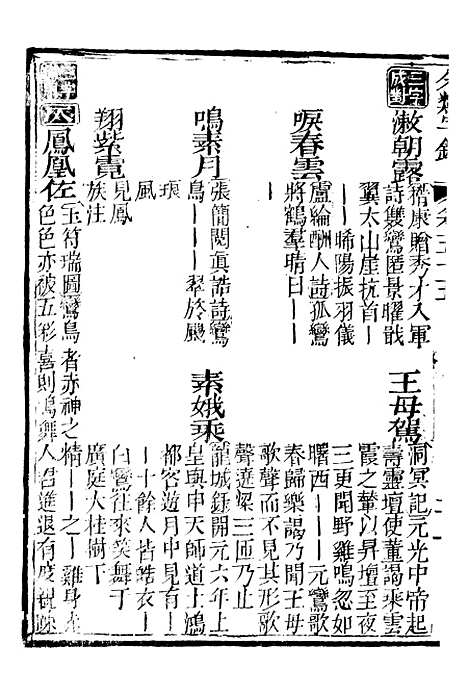 分類字錦 卷五十五
三字成對
漱朝露
嵇康贈秀才入軍
詩雙鸞匿景曜戢
翼太山崖抗首—
——晞陽振羽儀
王母駕
洞冥記元光中帝起
壽靈壇使董謁乘雲
霞之輦以昇壇至夜
三更聞野雞鳴忽如
曙西———元鸞歌
春歸樂謁乃聞王母
歌聲而不見其形歌
聲遶梁三匝乃止
唳春雲
盧綸酬人詩孤鸞
將鶴羣晴日——
鳴素月
張簡閱真誥詩鸞
鳥———翠於颷
風
素娥乘
龍城錄開元六年上
皇與申天師道士鴻
都客遊月中見有—
—十餘人皆皓衣—
白鸞往來笑舞于
廣庭大桂樹下
翔紫霓
見鳳
族注
鳳凰佐
玉符瑞圖鸞鳥者赤神之精——之—雞身赤
色色亦被五彩喜則鳴舞人君進退有度親疎